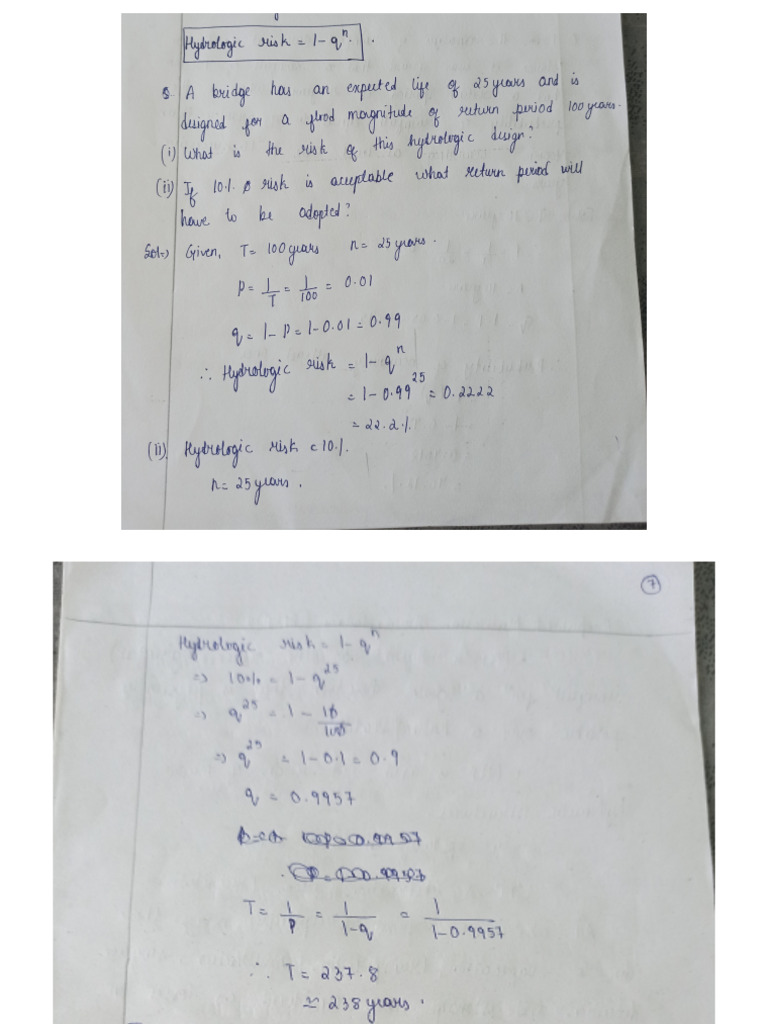 Hydrologic risk = 1-qⁿ.
Q. A bridge has an expected life of 25 years and is
designed for a flood magnitude of return period 100 years.
(i) What is the risk of this hydrologic design?
(ii) If 10% risk is acceptable what return period will
have to be adopted?
Sol:-) Given, T = 100 years n = 25 years.
P = 1/T = 1/100 = 0.01
q = 1-P = 1-0.01 = 0.99
∴ Hydrologic risk = 1-qⁿ
= 1-0.99²⁵ = 0.2222
= 22.2%
(ii) Hydrologic risk = 10%.
n = 25 years.
7
Hydrologic risk = 1-qⁿ
=> 10% = 1-q²⁵
=> q²⁵ = 1 - 10/100
=> q²⁵ = 1-0.1 = 0.9
q = 0.9957
T = 1/P = 1/1-q = 1/1-0.9957
∴ T = 237.8
≃ 238 years.